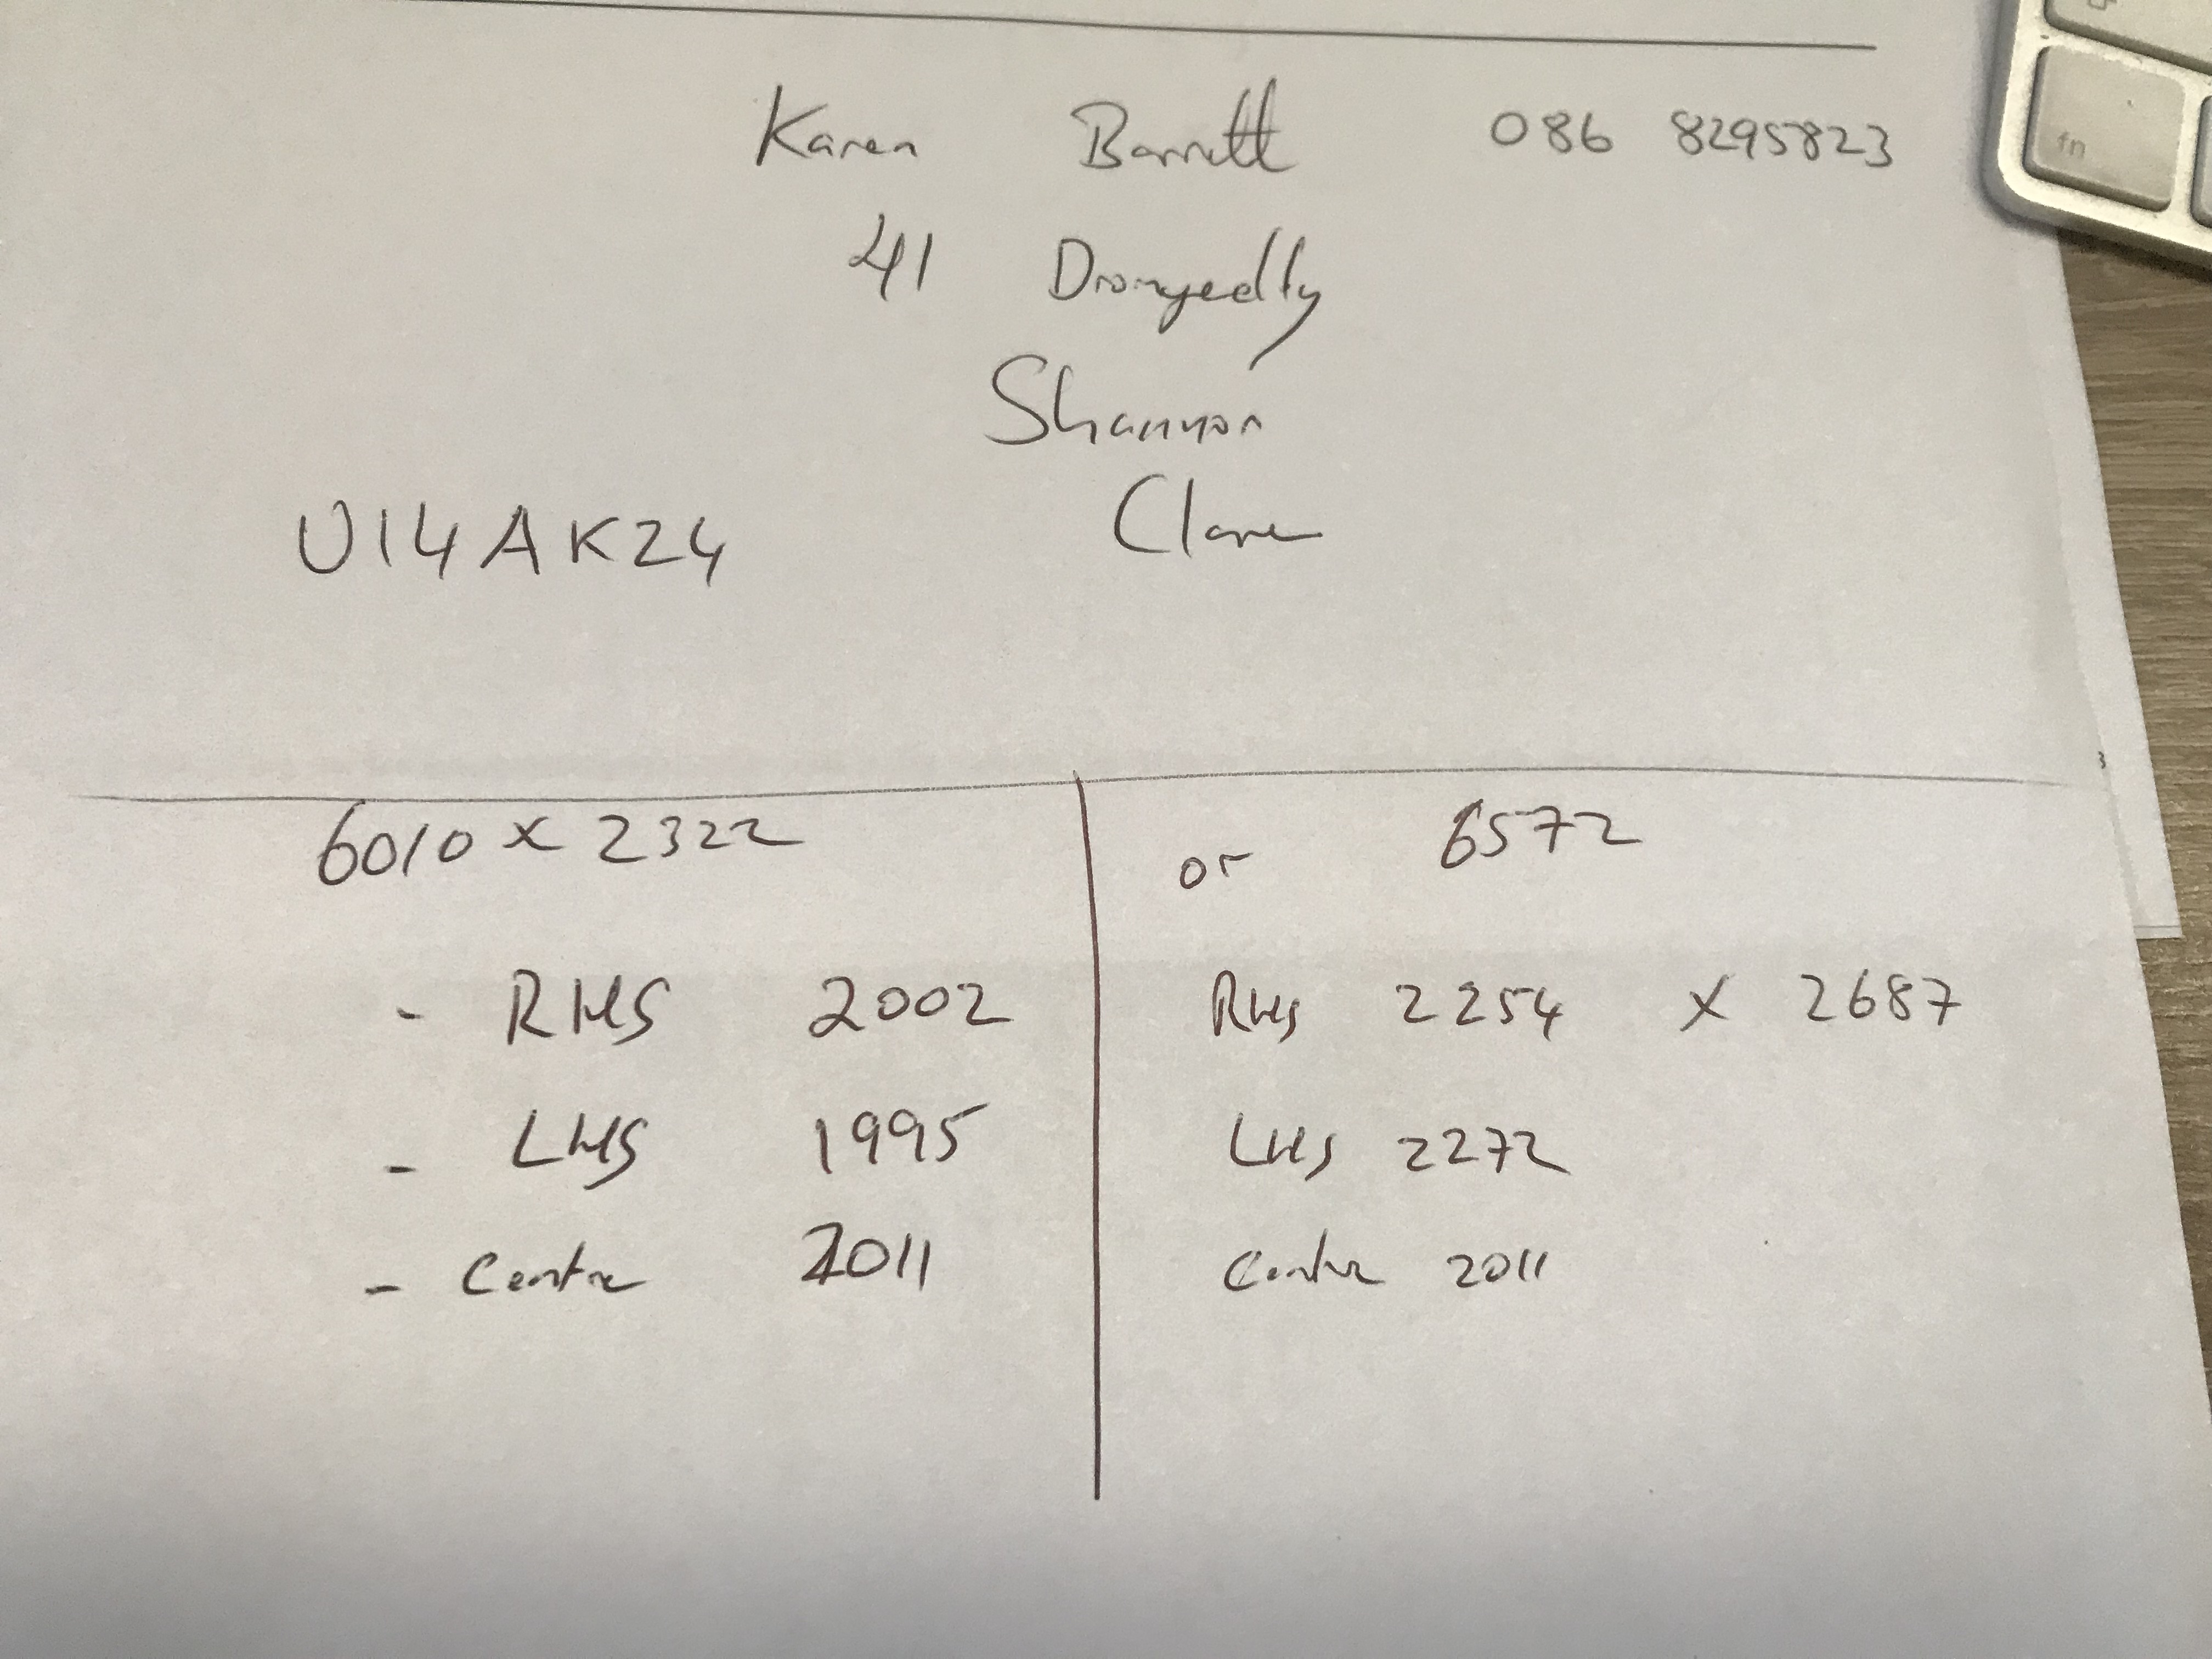 Karen Barrett 086 8295823
41 Dromgeelly
Shannon
Clare
U14AK24
6010 x 2322
- RHS 2002
- LHS 1995
- Centre 2011
or 6572
RHS 2254 x 2687
LHS 2272
Centre 2011
fn